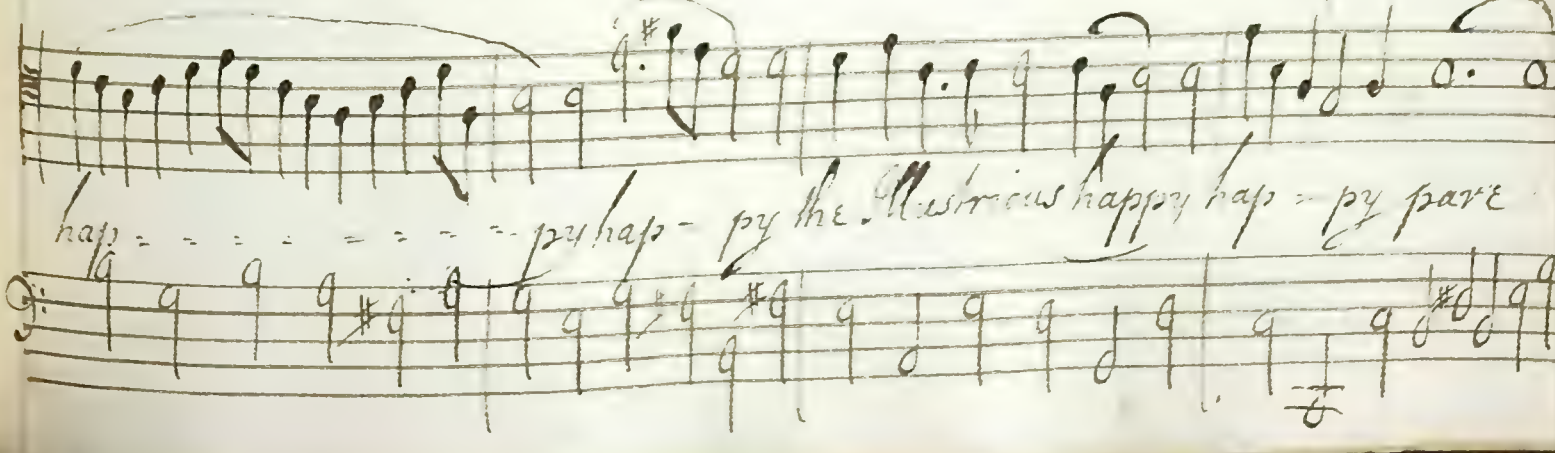 hap = = = = = = = = - py hap - py the Illustrious happy hap - py pare